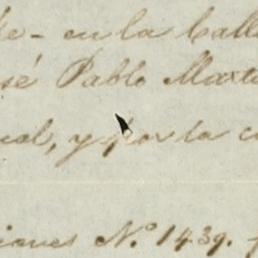 de - en la Calle
sé Pablo Mart
ual, y por la c
iones Nº 1439.